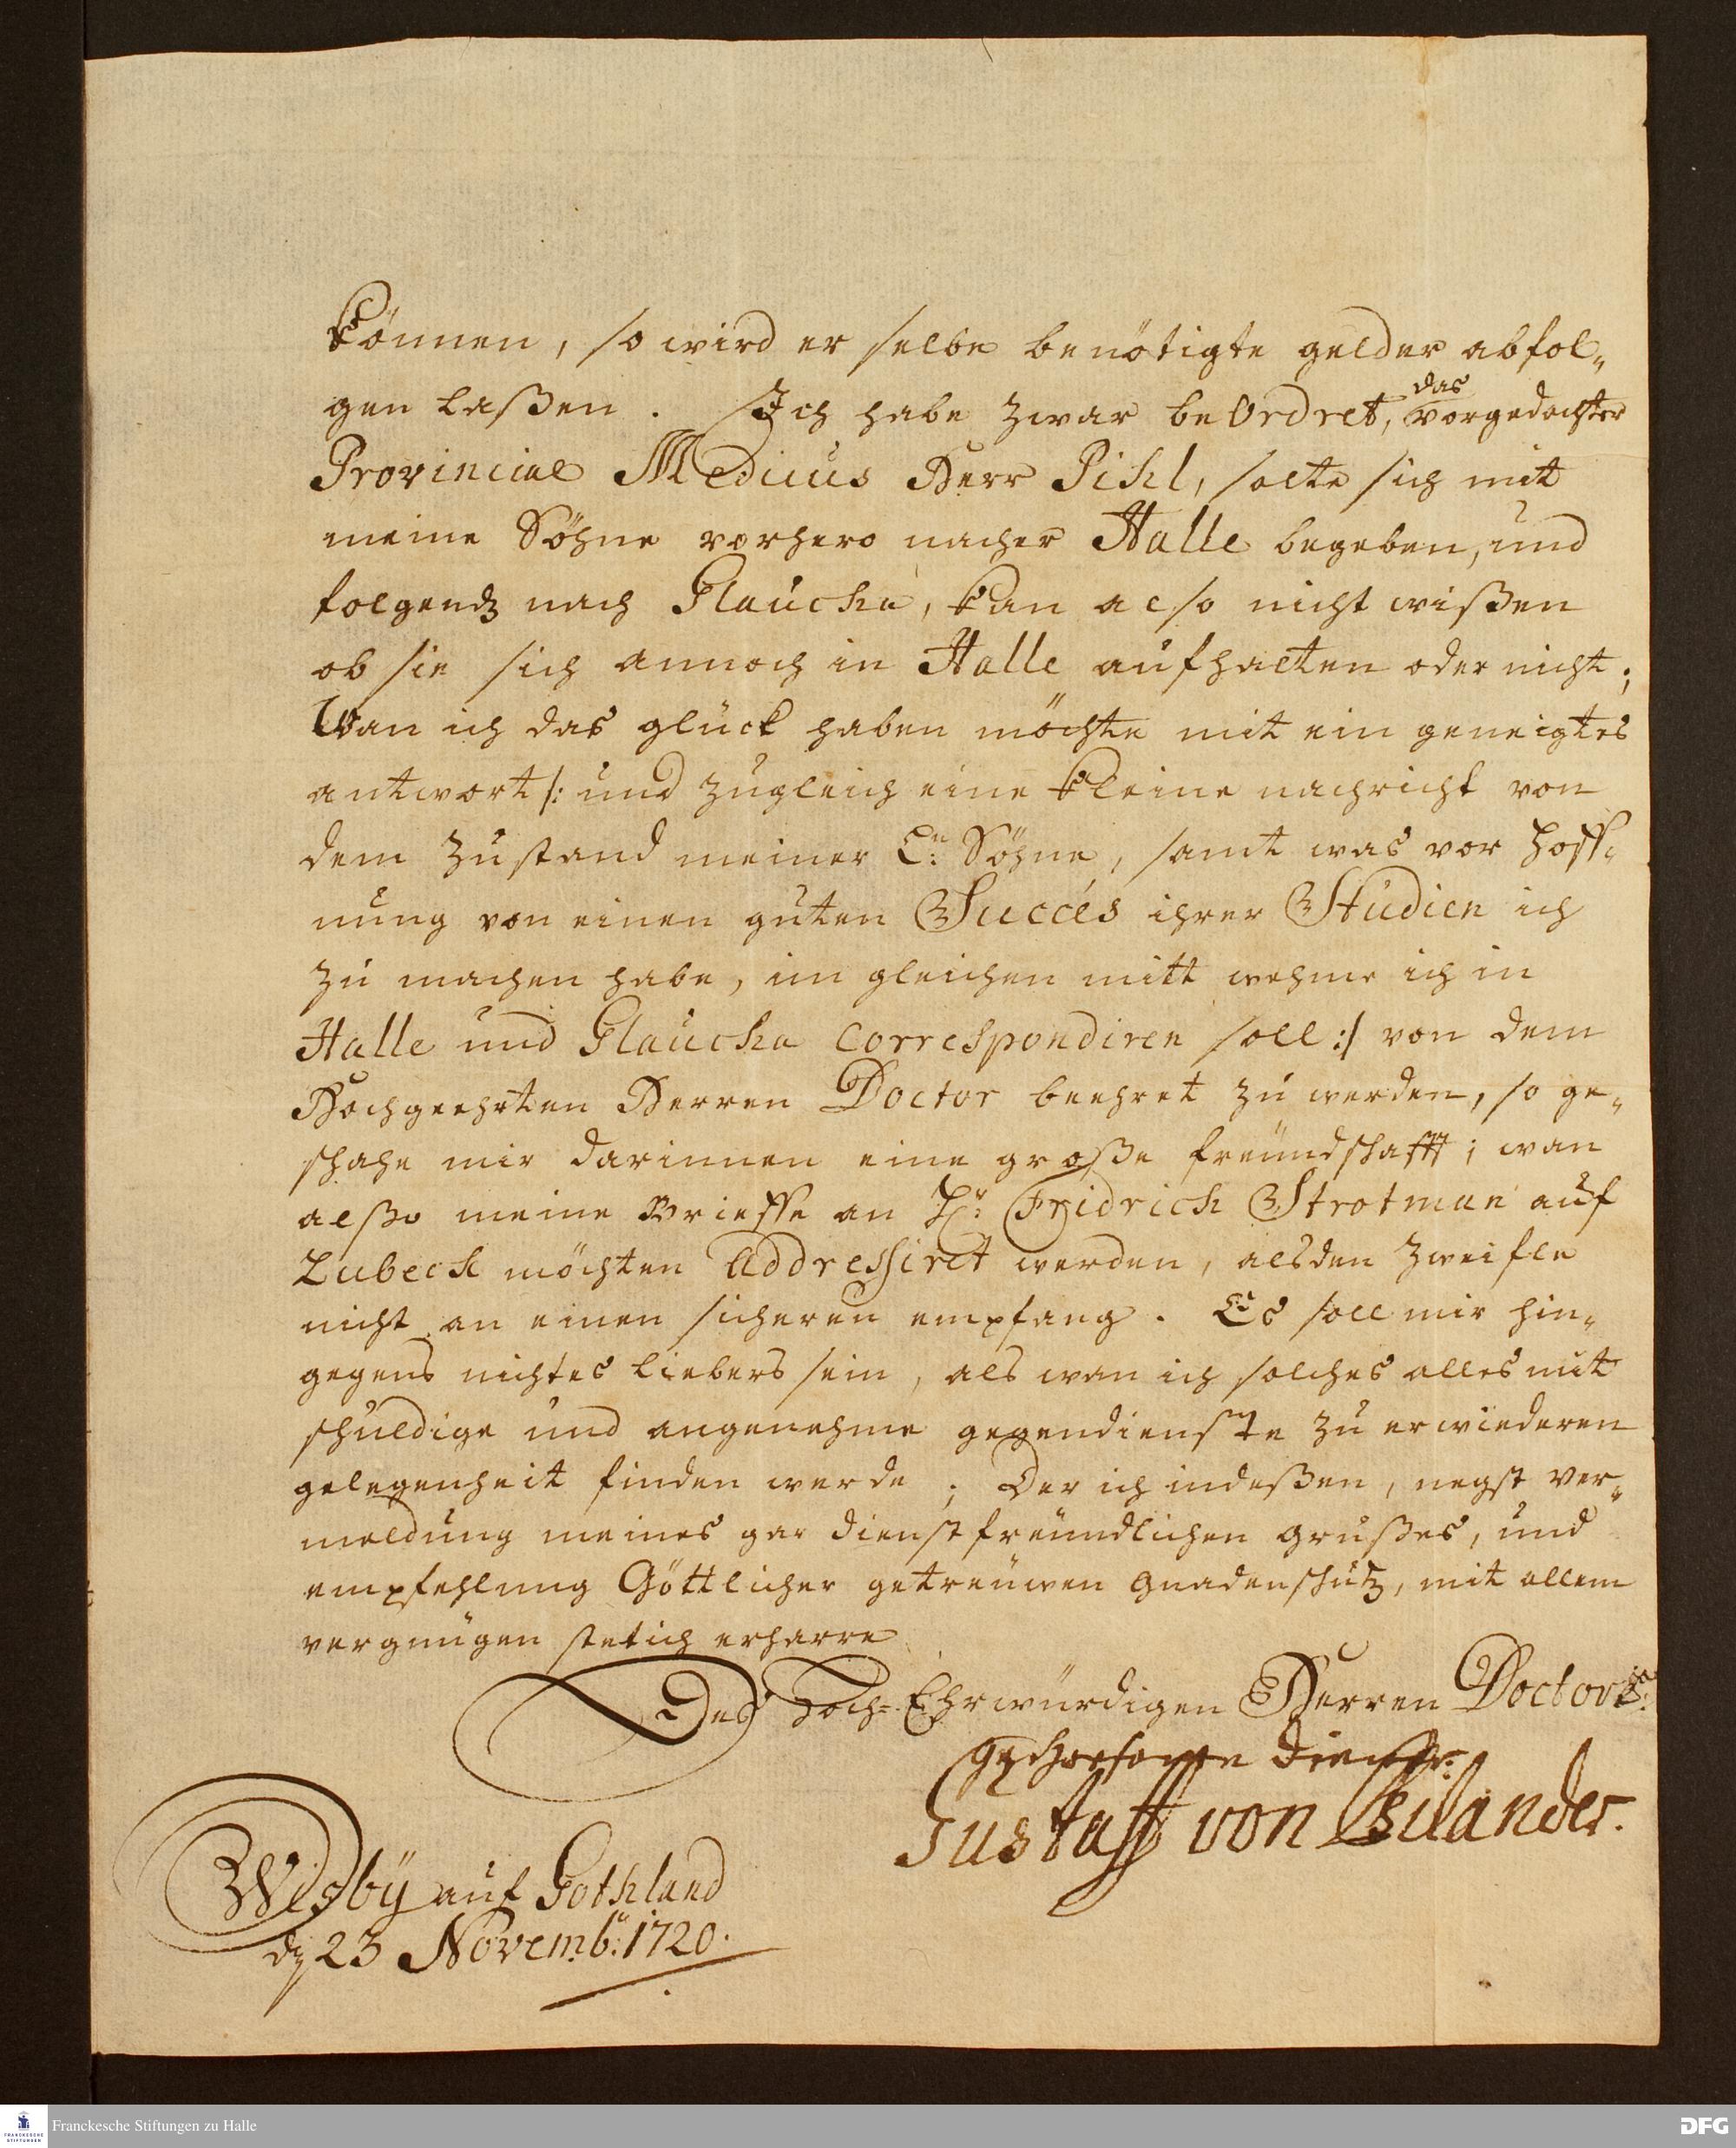 können, so wird er selbe benötigte gelder abfol„
gen laßen. Ich habe zwar beOrdret, das vorgedachter
Provincial Medicus Herr Pihl, solte sich mit
meine Söhne vorhero nacher Halle begeben, und
folgendz nach Glaucha, kan also nicht wißen
ob sie sich annoch in Halle aufhalten oder nicht;
Wan ich das glück haben möchte mit ein geneigtes
antwort /: und zugleich eine kleine nachricht von
dem zustand meiner L:n Söhne, samt was vor hoff„
nung von einen guten Succés ihrer Studien ich
zu machen habe, im gleichen mitt wehme ich in
Halle und Glaucha correspondiren soll :/ von dem
Hochgeehrten Herren Doctor beehret zu werden, so ge„
schahe mir darinnen eine große freündschafft; wan
alßo meine Brieffe an H:r Fridrich Strotman auf
Lubeck möchten addressiret werden, alsden zweifle
nicht an einen sicheren empfang. Es soll mir hin„
gegens nichtes liebers sein, als wan ich solches alles mit
schuldige und angenehme gegendienste zu erwiederen
gelegenheit finden werde; Der ich indeßen, negst ver„
meldung meines gar dienstfreündlichen grußes, und
empfehlung Göttlicher getreüwen gnadenschutz, mit allem
vergnügen stetich erharre
Des Hoch-Ehrwürdigen Herren Doctoris
Diener
Gustaff von
Wisby auf Gothland
dz 23 Novemb: 1720.
Franckesche Stiftungen zu Halle
FRANCKESCHE STIFTUNGEN
DFG